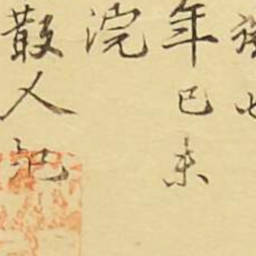 七
年己未
浣
散人記